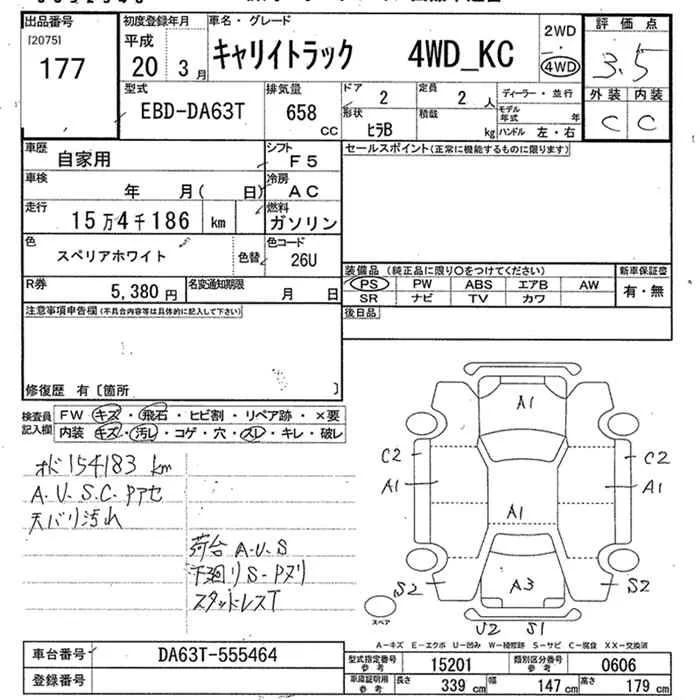 出品番号
[2075]
177
初度登録年月
平成
20 3月
車名・グレード
キャリイトラック 4WD_KC
2WD
・
4WD
評価点
3.5
外装 内装
C C
型式
EBD-DA63T
排気量
658
cc
ドア
2
定員
2 人
形状
ヒラB
積載
kg
ディーラー・並行
モデル年式 年
ハンドル 左・右
車歴
自家用
シフト
F5
車検
年 月( 日)
冷房
AC
走行
15万4千186 km
燃料
ガソリン
色
スペリアホワイト
色替
色コード
26U
R券
5,380円
名変通知期限
月 日
セールスポイント(正常に機能するものに限ります)
装備品(純正品に限り○をつけてください)
PS PW ABS エアB AW
SR ナビ TV カワ
新車保証書
有・無
後日品
注意事項申告欄(不具合内容等は具体的に記入して下さい)
修復歴 有〔箇所 〕
検査員記入欄
FW キズ・飛石・ヒビ割・リペア跡・×要
内装 キズ・汚レ・コゲ・穴・スレ・キレ・破レ
オド154183 km
A.U.S.C.Pアセ
天バリ汚れ
荷台 A.U.S
下廻りS-Pヌリ
スタッドレスT
A1
C2 C2
A1 A1
A1
A3
S2 S2
U2 S1
スペア
A-キズ E-エクボ U-凹み W-補修跡 S-サビ C-腐食 XX-交換済
車台番号
DA63T-555464
登録番号
型式指定番号 参考
15201
類別区分番号 参考
0606
車庫証明用 参考
長さ 339 cm
幅 147 cm
高さ 179 cm